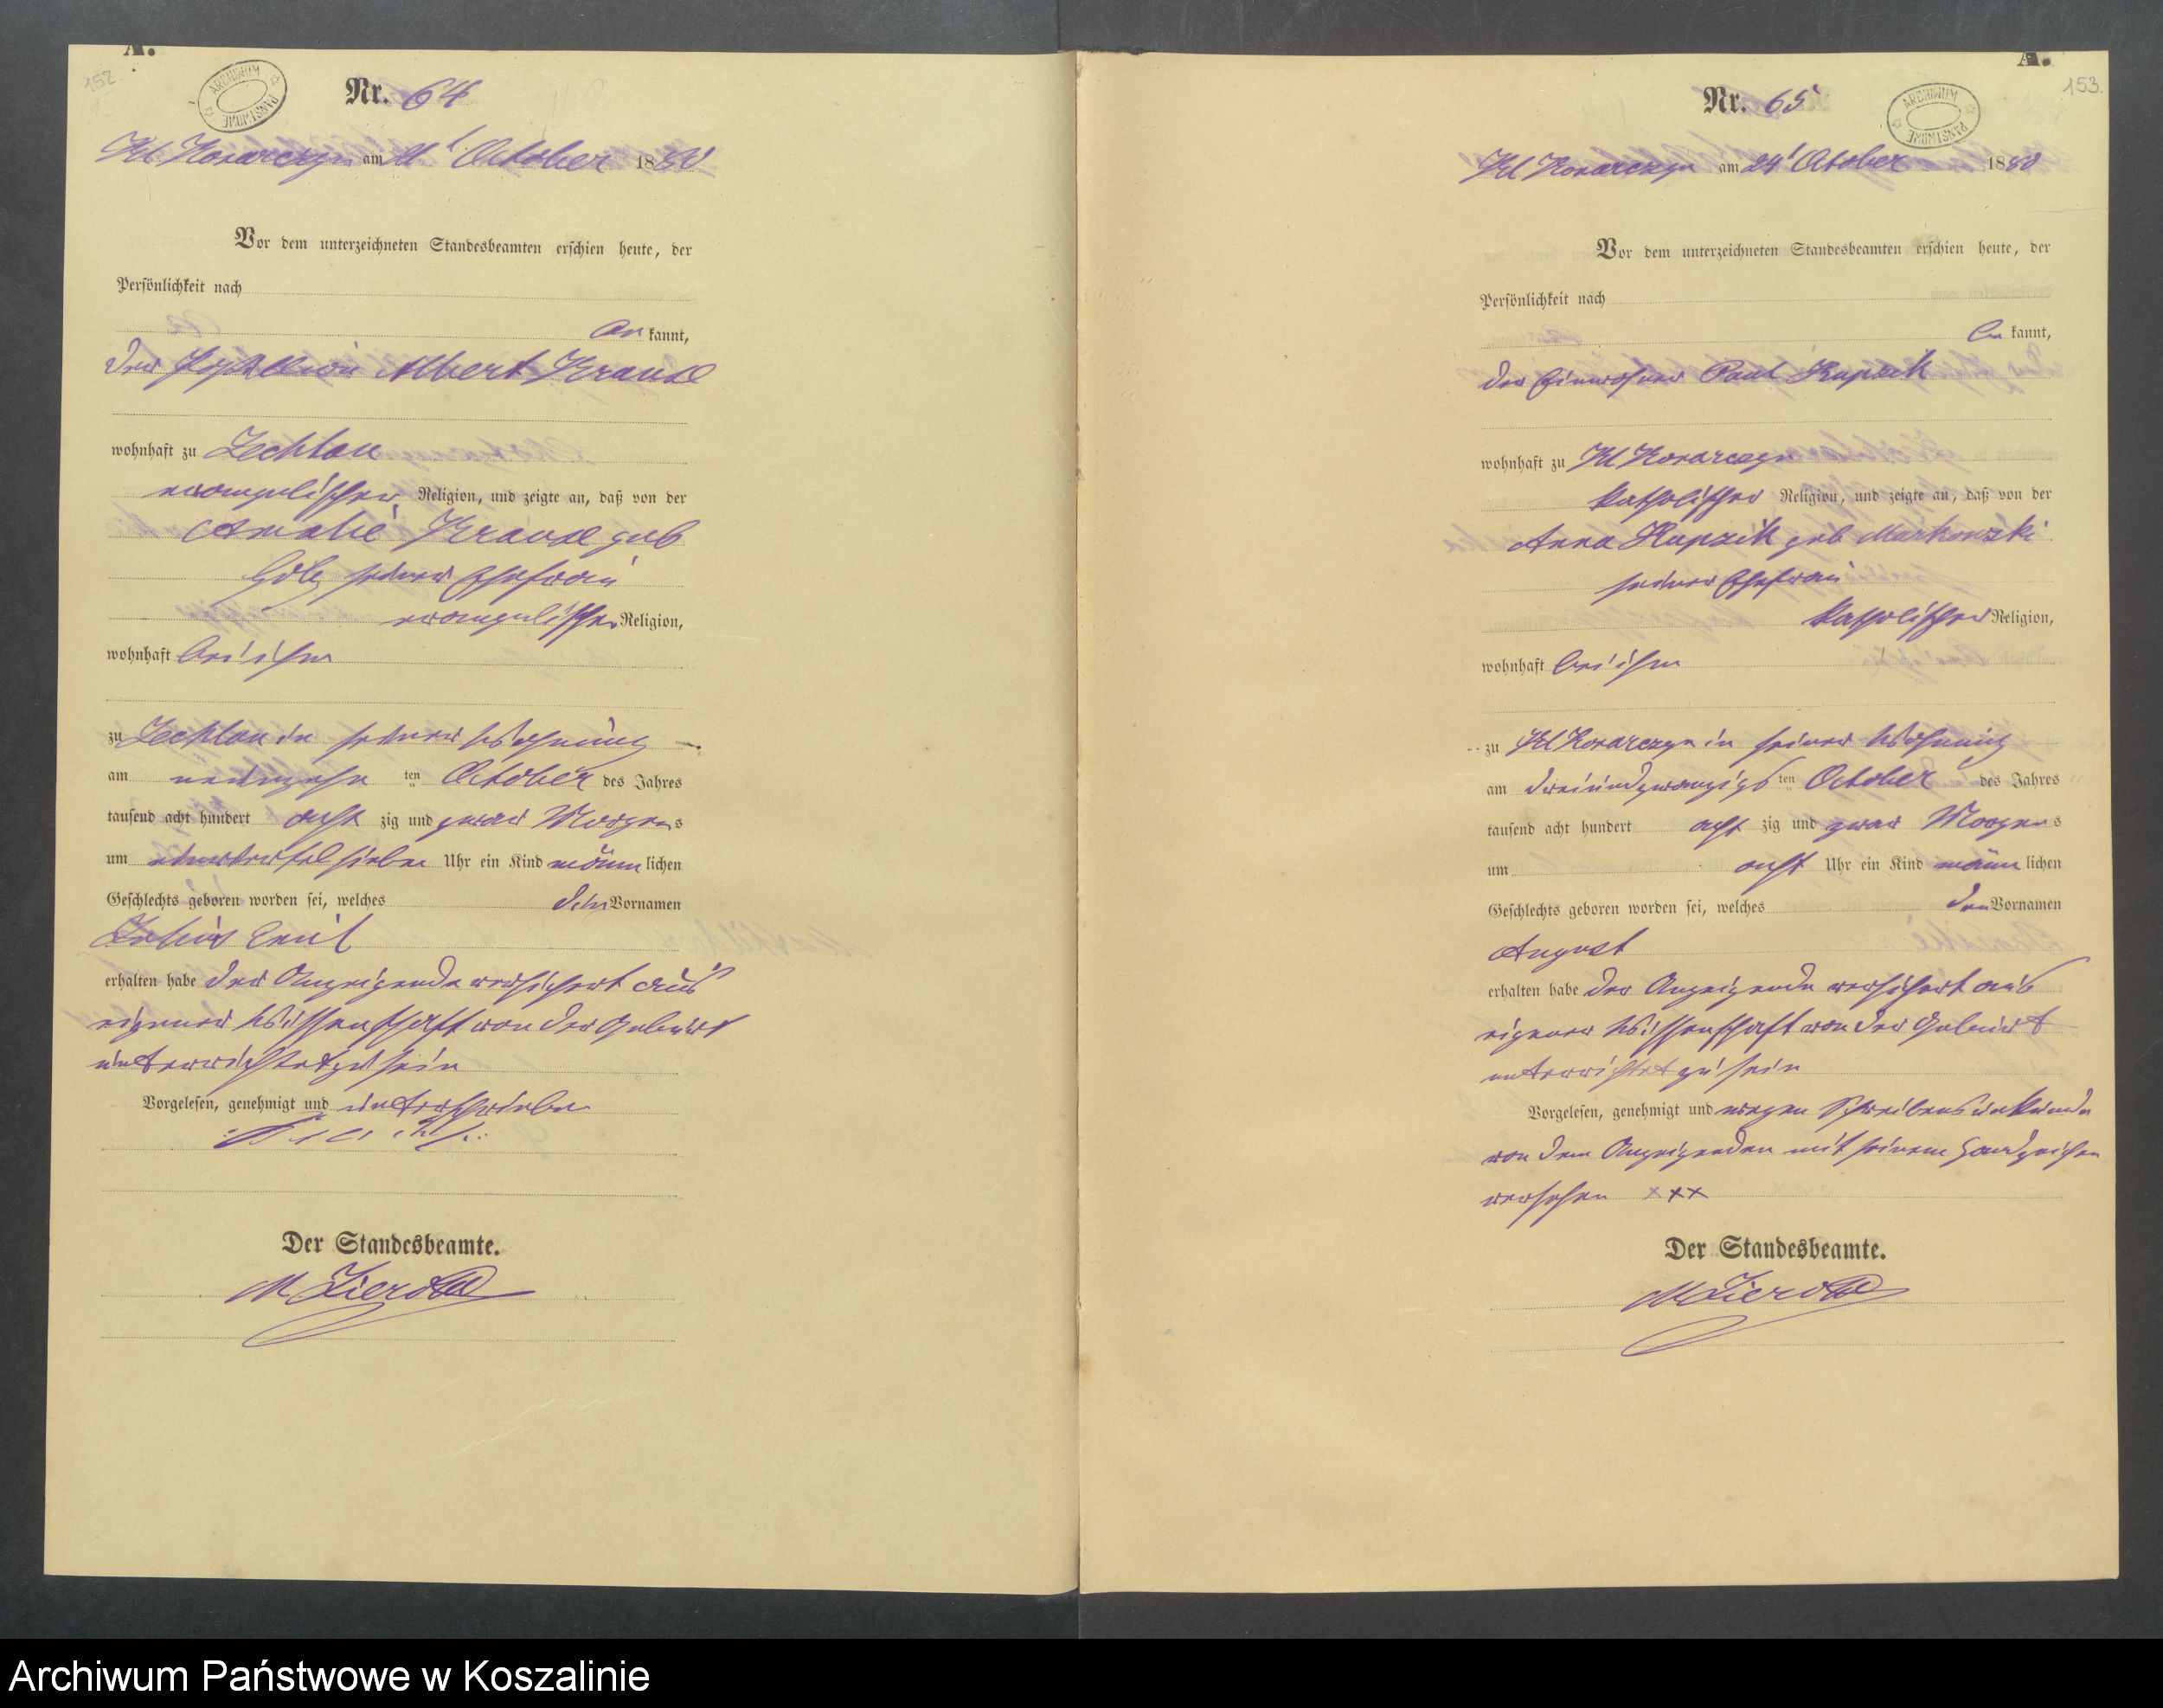 A.
152
ARCHIWUM PAŃSTWOWE
Nr. 64
Kl Konarczyn am October 1880
Vor dem unterzeichneten Standesbeamten erschien heute, der
Persönlichkeit nach
be kannt,
der Albert Krause
wohnhaft zu Zechlau
evangelischer Religion, und zeigte an, daß von der
Amalie Krause geb
seiner Ehefrau
evangelischer Religion,
wohnhaft bei ihm
zu Zechlau in seiner Wohnung
am neunzehn ten October des Jahres
tausend acht hundert acht zig und zwar Morgens
um einviertel sieben Uhr ein Kind männ lichen
Geschlechts geboren worden sei, welches den Vornamen
Julius Emil
erhalten habe der Anzeigende versichert aus
eigener Wissenschaft von der Geburt
unterrichtet zu sein
Vorgelesen, genehmigt und unterschrieben
Der Standesbeamte.
A.
153.
ARCHIWUM PAŃSTWOWE
Nr. 65
Kl Konarczyn am 24t October 1880
Vor dem unterzeichneten Standesbeamten erschien heute, der
Persönlichkeit nach
be kannt,
der Einwohner Paul Kupzik
wohnhaft zu Kl Konarczyn
katholischer Religion, und zeigte an, daß von der
Anna Kupzik geb Markowski
seiner Ehefrau
katholischer Religion,
wohnhaft bei ihm
zu Kl Konarczyn in seiner Wohnung
am dreiundzwanzigs ten October des Jahres
tausend acht hundert acht zig und zwar Morgens
um acht Uhr ein Kind männ lichen
Geschlechts geboren worden sei, welches den Vornamen
August
erhalten habe der Anzeigende versichert aus
eigener Wissenschaft von der Geburt
unterrichtet zu sein
Vorgelesen, genehmigt und wegen Schreibensunkunde
von dem Anzeigenden mit seinem Handzeichen
versehen xxx
Der Standesbeamte.
Archiwum Państwowe w Koszalinie